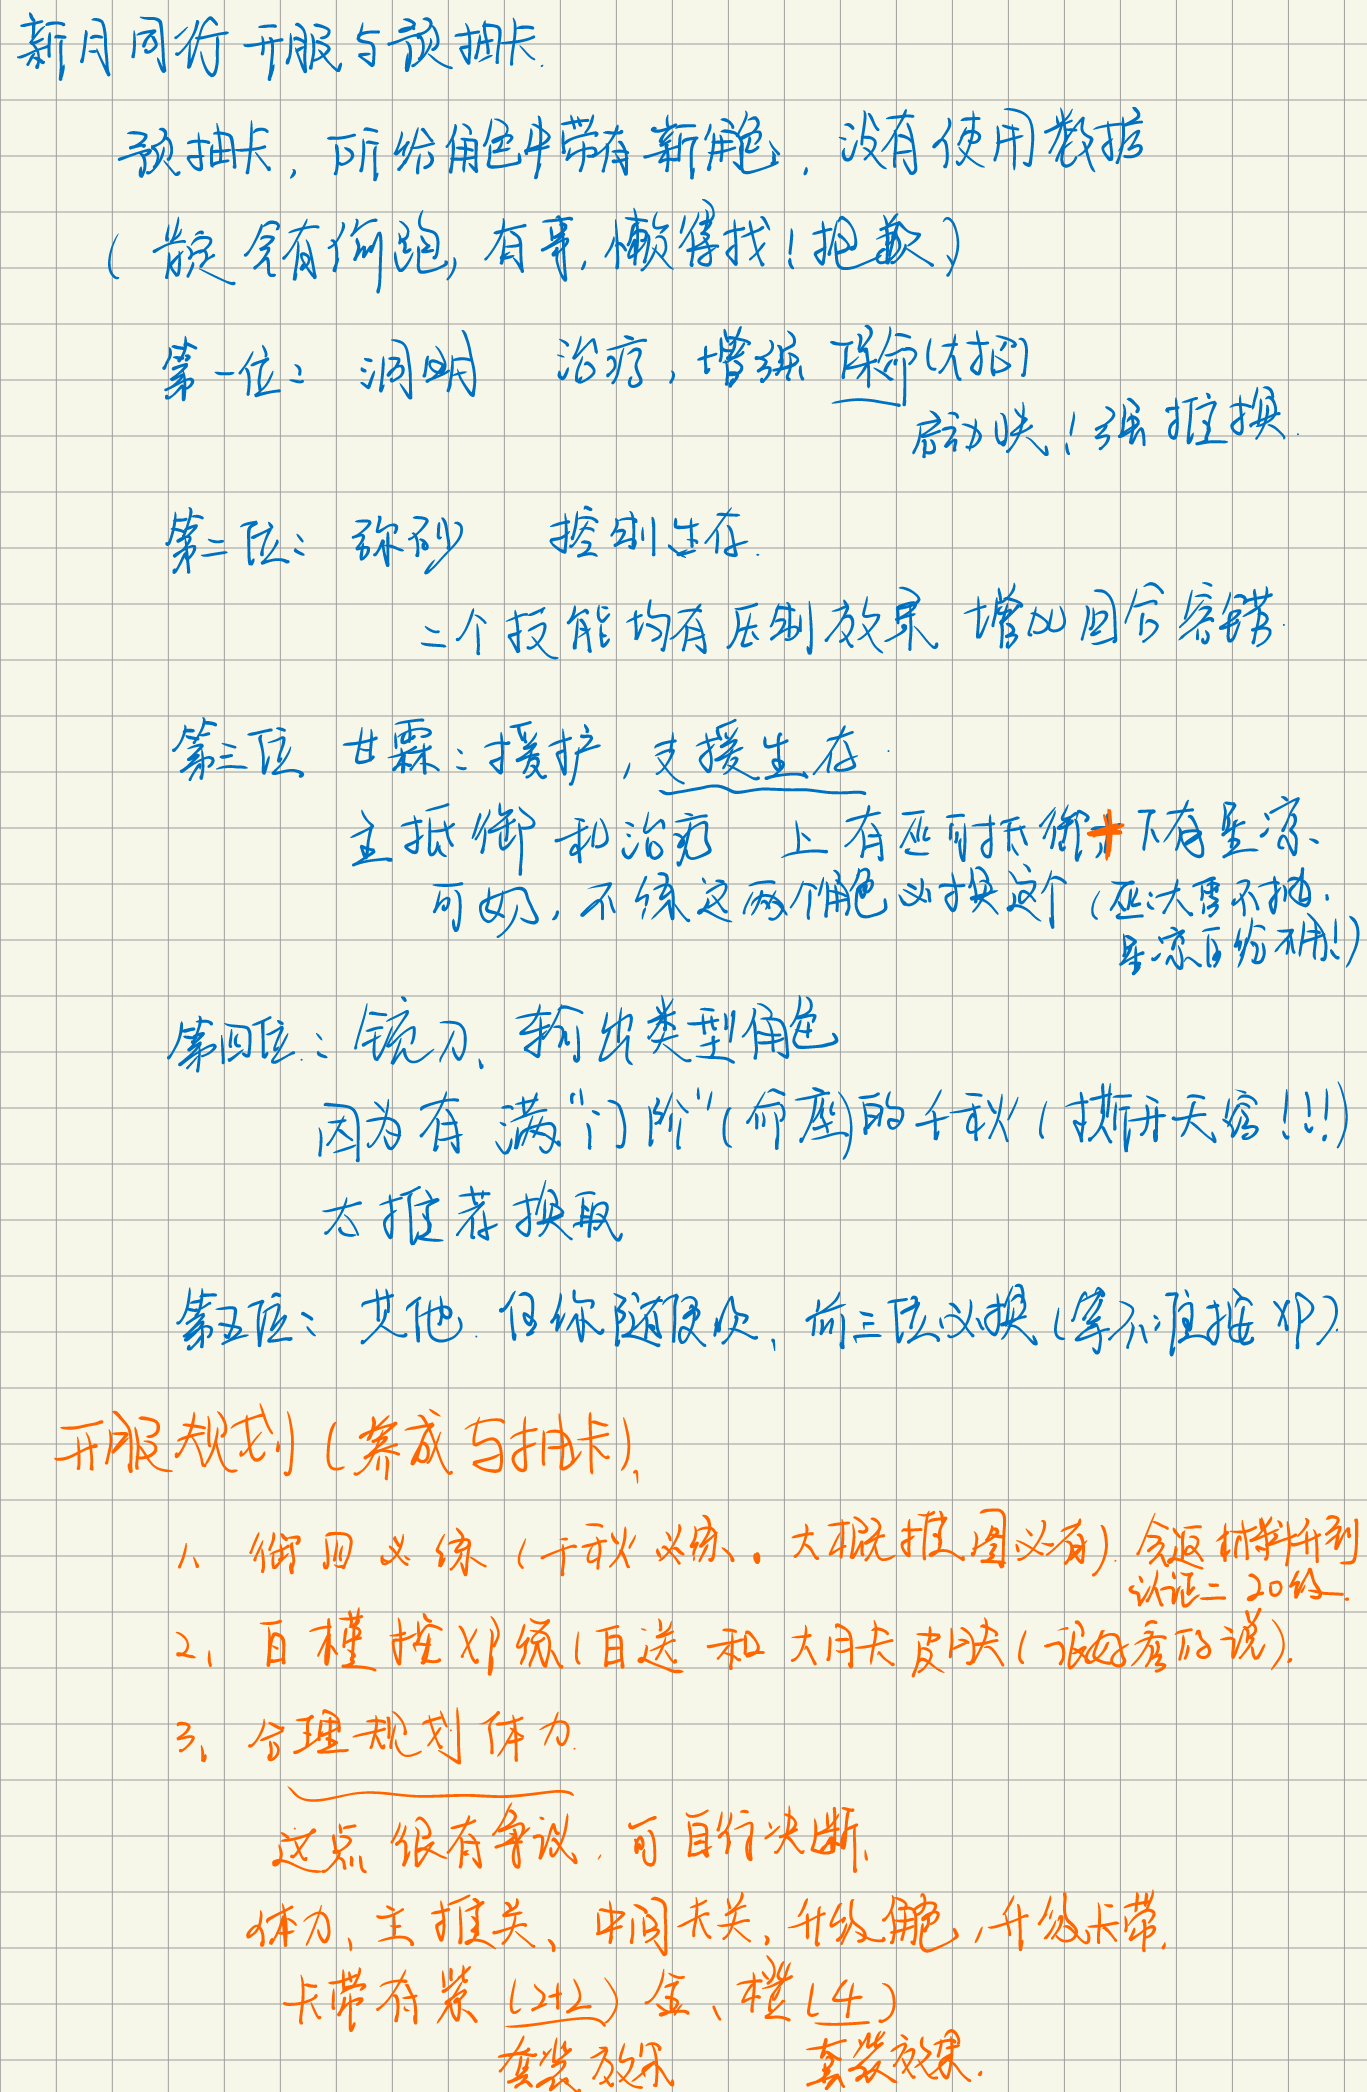 新月同行 开服与预抽卡.
预抽卡, 所给角色中带有新角色, 没有使用数据
(肯定会有偷跑, 有事, 懒得找! 抱歉)
第一位: 洞明 治疗, 增强 保命(大招)
启动快! 强推换.
第二位: 弥砂 控制生存.
二个技能均有压制效果 增加回合容错.
第三位 甘霖: 援护, 支援生存.
主抵御和治疗 上有巫可抵御+下有星凉、
可奶, 不练这两个角色必换这个 (巫:大雪不抽.
星凉白给不用!)
第四位: 镜刀、输出类型角色
因为有满"门阶"(命座)的千秋(撕开天穹!!!)
不推荐换取
第五位: 其他. 任你随便吹, 前三位必换(拿不准按XP).
开服规划(养成与抽卡),
1、御四必练(千秋必练。大概推图必有). 会返材料升到
认证二 20级.
2、白槿按XP练(白送 和 大月卡皮肤(很好看的说).
3、合理规划体力.
这点很有争议, 可自行决断、
体力、主推关、中间夫关, 升级角色, 升级卡带.
卡带有紫(2+2) 金、橙(4)
套装效果 套装效果.